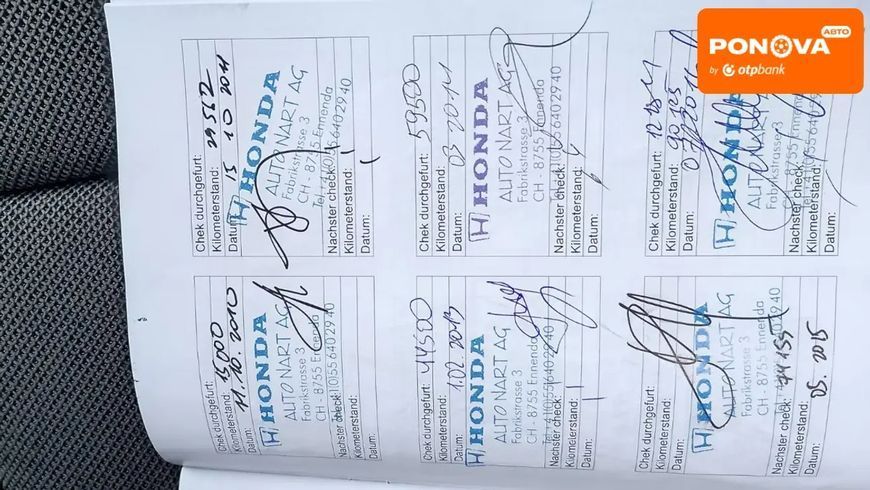 PONOVA
АВТО
by otpbank
Chek durchgefurt:
Kilometerstand: 15,000
Datum: 11.10.2010
H HONDA
AUTO NART AG
Fabrikstrasse 3
CH - 8755 Ennenda
Nachster check:
Kilometerstand:
Datum:
Chek durchgefurt:
Kilometerstand: 29562
Datum: 15 10 2011
H HONDA
AUTO NART AG
Fabrikstrasse 3
CH - 8755 Ennenda
Nachster check:
Kilometerstand:
Datum:
Chek durchgefurt: 44500
Kilometerstand: 1.02.2013
H HONDA
AUTO NART AG
Fabrikstrasse 3
CH - 8755 Ennenda
Nachster check:
Kilometerstand:
Datum:
Chek durchgefurt: 59500
Kilometerstand:
Datum: 03 2014
H HONDA
AUTO NART AG
Fabrikstrasse 3
CH - 8755 Ennenda
Nachster check:
Kilometerstand:
Datum:
Chek durchgefurt:
Kilometerstand:
Datum:
H HONDA
AUTO NART AG
Fabrikstrasse 3
CH - 8755 Ennenda
Nachster check: 74155
Kilometerstand:
Datum: 05. 2015
Chek durchgefurt:
Kilometerstand: 90125
Datum:
H HONDA
AUTO
Fabrikstrasse
CH - 8755 Ennenda
Nachster check:
Kilometerstand:
Datum: